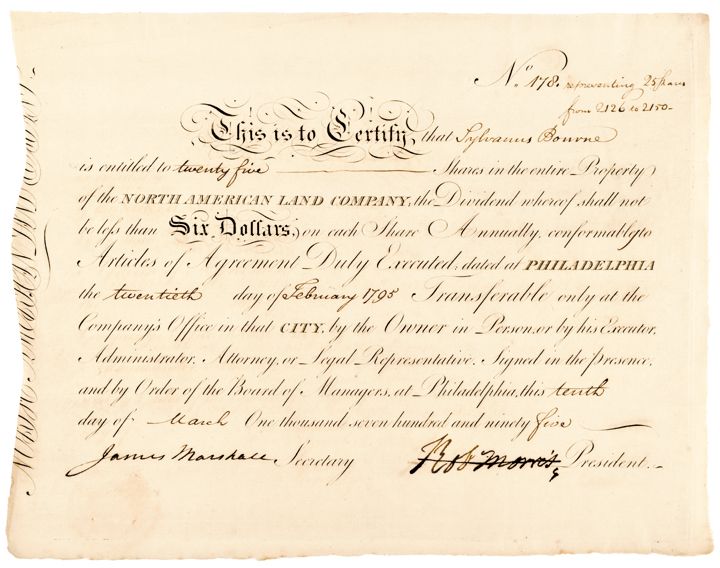 No. 178. representing 25 Shares
from 2126 to 2150-
This is to Certify, that Sylvanus Bourne
is entitled to twenty five Shares in the entire Property
of the NORTH AMERICAN LAND COMPANY, the Dividend whereof shall not
be leſs than Six Dollars, on each Share Annually, conformably to
Articles of Agreement Duly Executed; dated at PHILADELPHIA
the twentieth day of February 1795 Transferable only at the
Company's Office in that CITY, by the Owner in Person, or by his Executor,
Administrator, Attorney, or Legal Representative. Signed in the Presence,
and by Order of the Board of Managers, at Philadelphia, this tenth
day of March One thousand seven hundred and ninety five
James Marshall, Secretary Rob Morris, President.